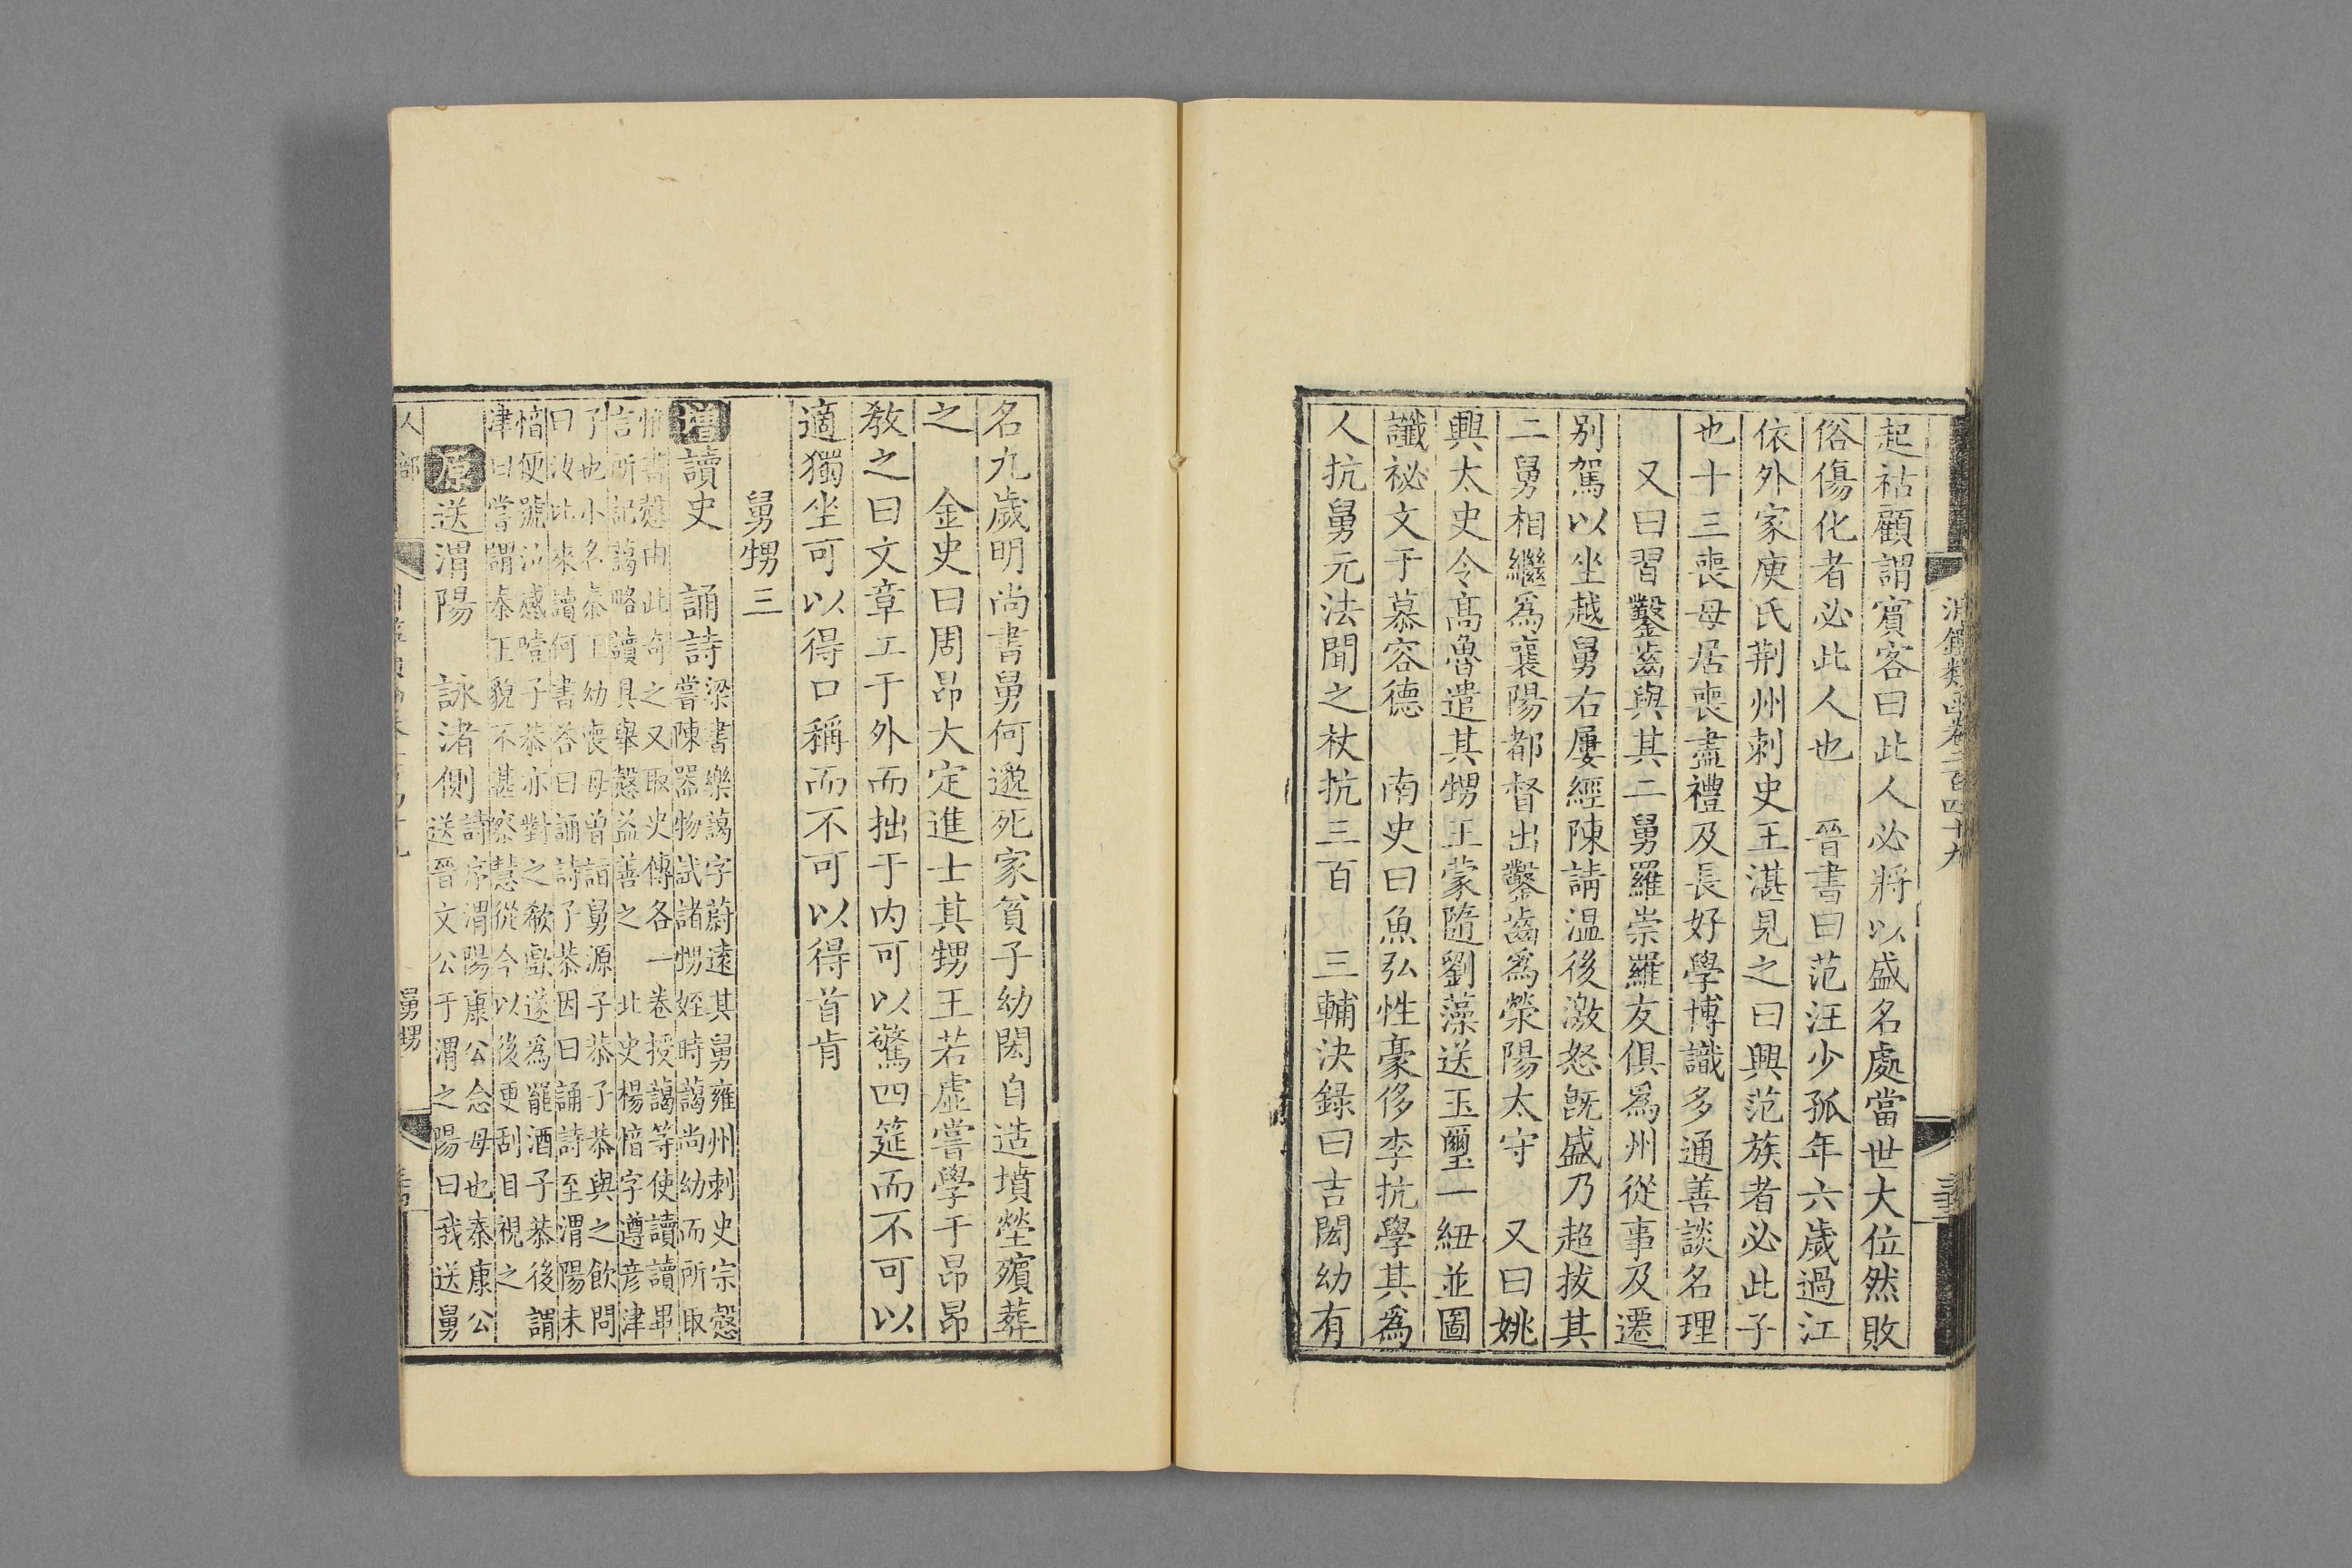 淵鑑類函卷二百四十九
起祜顧謂賓客曰此人必將以盛名處當世大位然敗
俗傷化者必此人也 晉書曰范汪少孤年六歲過江
依外家庾氏荆州刺史王湛見之曰興范族者必此子
也十三喪母居喪盡禮及長好學博識多通善談名理
又曰習鑿齒與其二舅羅崇羅友俱爲州從事及遷
別駕以坐越舅右屢經陳請温後激怒旣盛乃超拔其
二舅相繼爲襄陽都督出鑿齒爲滎陽太守 又曰姚
興太史令高魯遣其甥王蒙隨劉藻送玉璽一紐並圖
讖祕文于慕容德 南史曰魚弘性豪侈李抗學其爲
人抗舅元法聞之杖抗三百 三輔決錄曰吉閎幼有
名九歲明尚書舅何邈死家貧子幼閎自造墳塋殯葬
之 金史曰周昂大定進士其甥王若虛嘗學于昂昂
教之曰文章工于外而拙于内可以驚四筵而不可以
適獨坐可以得口稱而不可以得首肯
舅甥三
增讀史 誦詩梁書樂藹字蔚遠其舅雍州刺史宗慤
嘗陳器物試諸甥姪時藹尚幼而所取
惟書慤由此奇之又取史傳各一卷授藹等使讀讀畢
言所記藹略讀具舉慤益善之 北史楊愔字遵彥津
子也小名秦王幼喪母曾詣舅源子恭子恭與之飲問
曰汝比來讀何書答曰誦詩子恭因曰誦詩至渭陽未
愔便號泣感噎子恭亦對之欷歔遂爲罷酒子恭後謂
津曰嘗謂秦王貌不甚察慧從今以後更刮目視之
原送渭陽 詠渚側詩序渭陽康公念母也秦康公
送晉文公于渭之陽曰我送舅
人部
舅甥